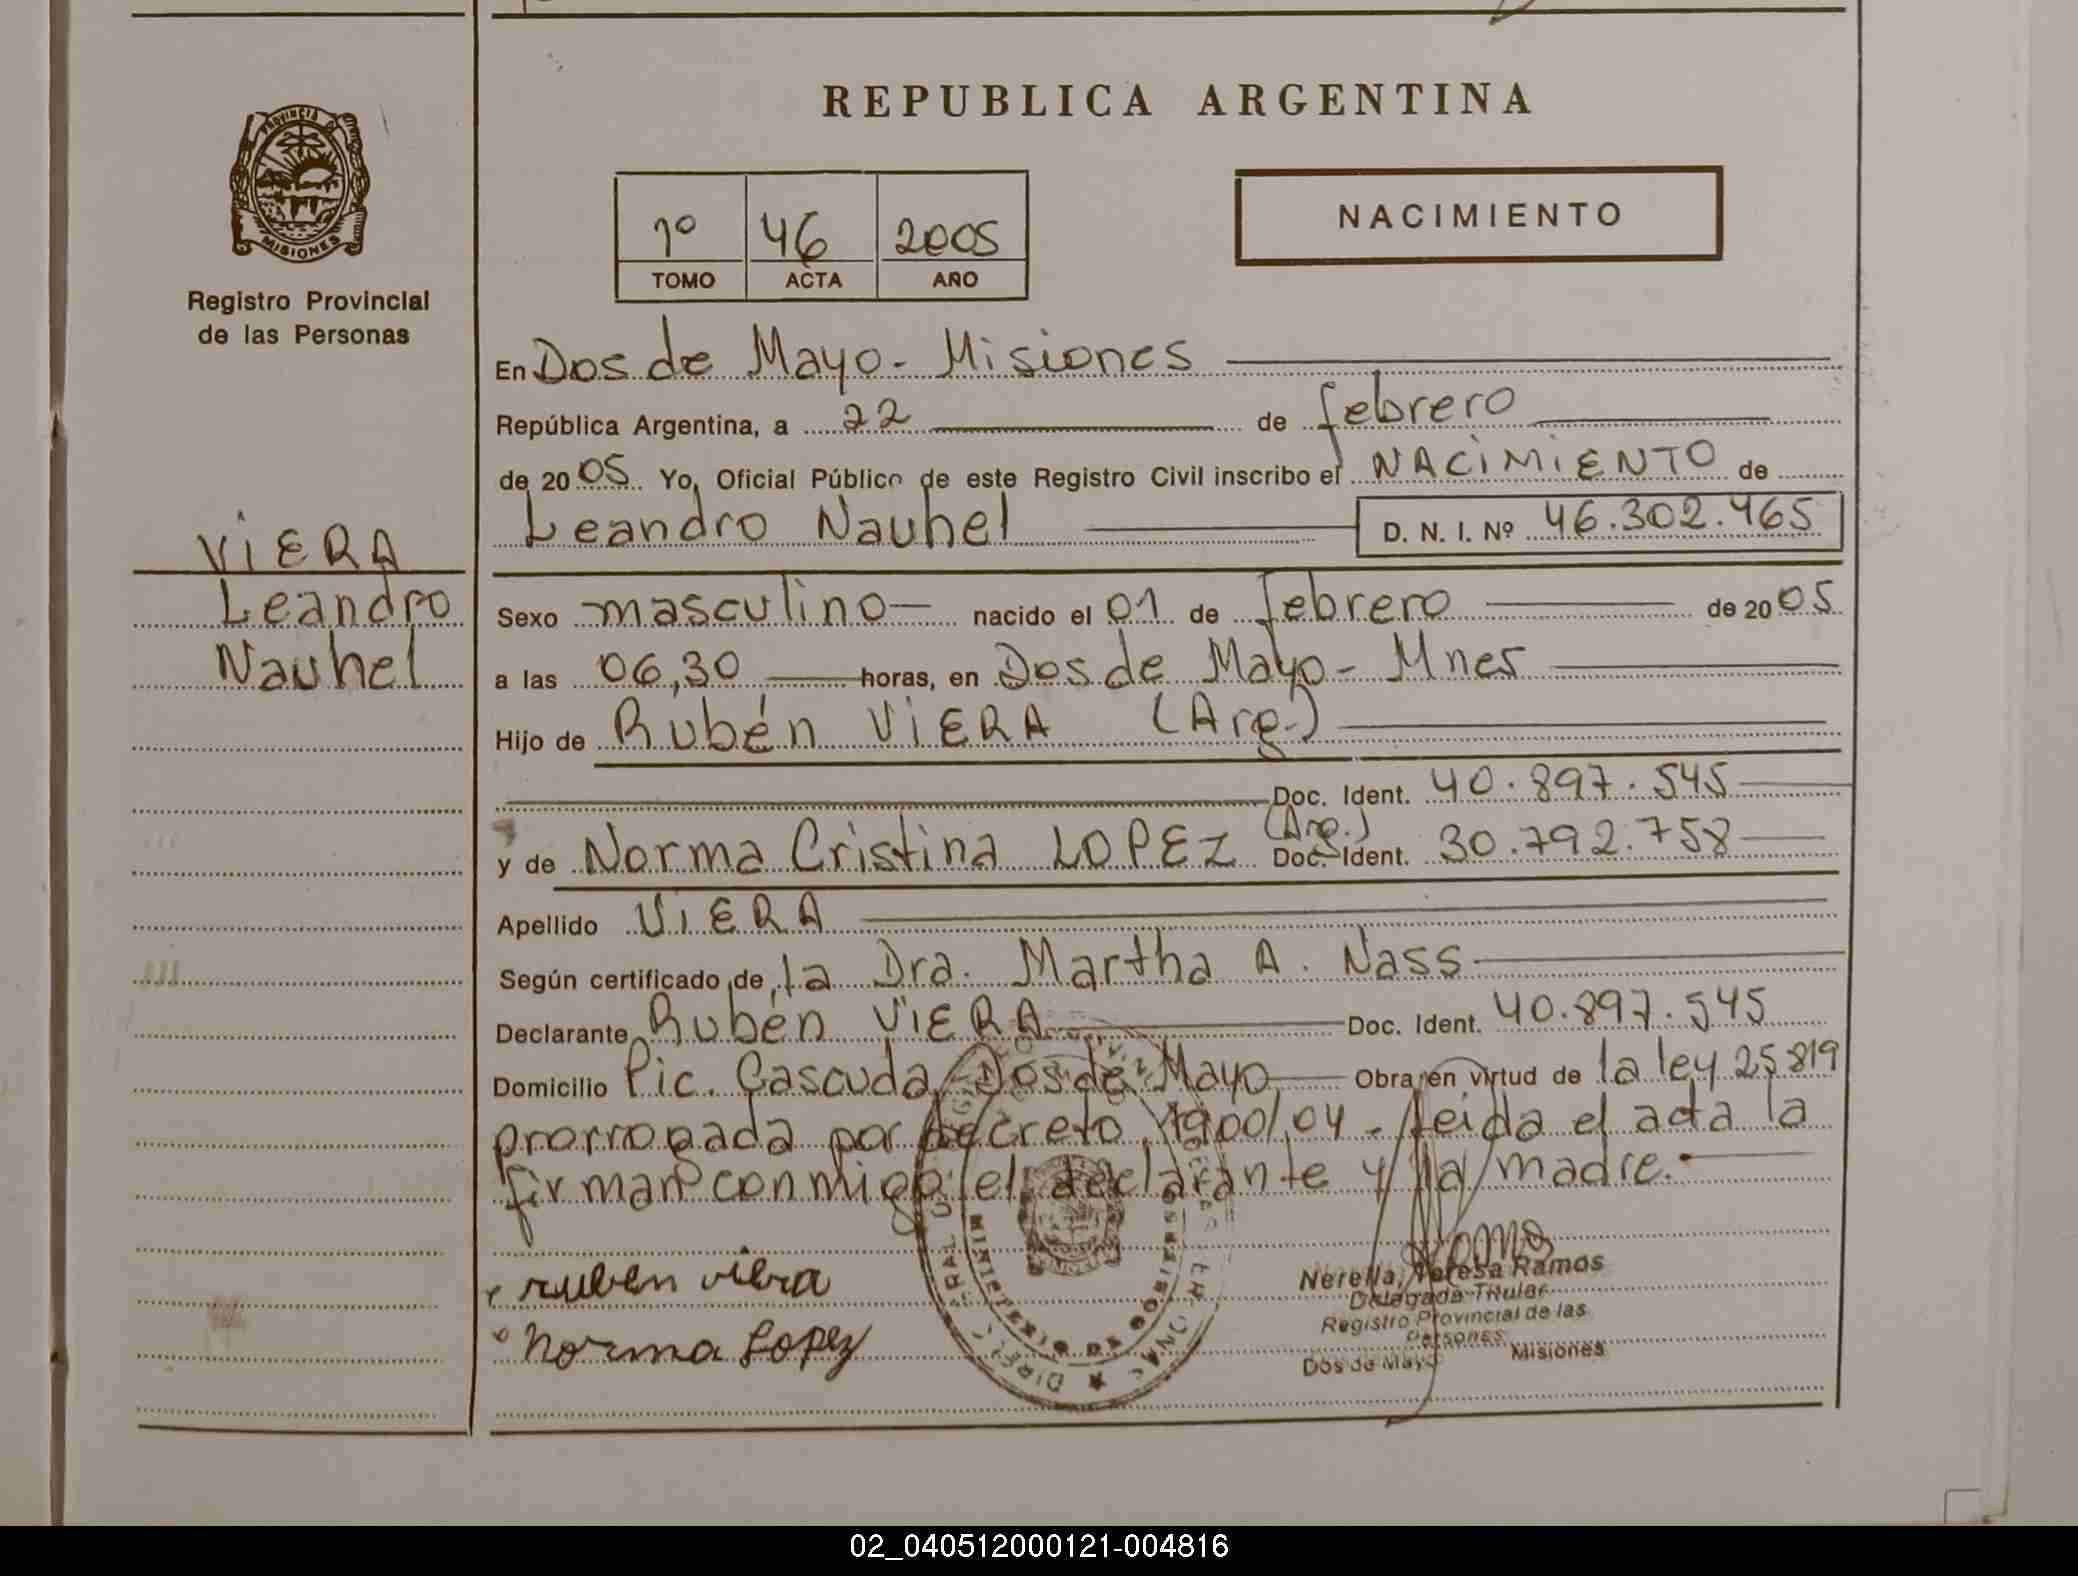 REPUBLICA ARGENTINA
PROVINCIA DE
MISIONES
Registro Provincial
de las Personas
1º 46 2005
TOMO ACTA AÑO
NACIMIENTO
En Dos de Mayo - Misiones
República Argentina, a 22 de febrero
de 2005 Yo, Oficial Público de este Registro Civil inscribo el NACIMIENTO de
Leandro Nauhel D. N. I. Nº 46.302.465
VIERA
Leandro
Nauhel
Sexo masculino nacido el 01 de febrero de 2005
a las 06,30 horas, en Dos de Mayo - Mnes
Hijo de Rubén VIERA (Arg.)
Doc. Ident. 40.897.545
y de Norma Cristina LOPEZ (Arg.) Doc. Ident. 30.792.758
Apellido VIERA
Según certificado de la Dra. Martha A. Nass
Declarante Rubén VIERA Doc. Ident. 40.897.545
Domicilio Pic. Cascuda, Dos de Mayo Obra en virtud de la ley 25819
prorrogada por decreto 1900/04 - leida el acta la
firman conmigo el declarante y la madre.
ruben viera
Norma Lopez
Nerella Teresa Ramos
Delegada Titular
Registro Provincial de las
Personas
Dos de Mayo Misiones
02_040512000121-004816